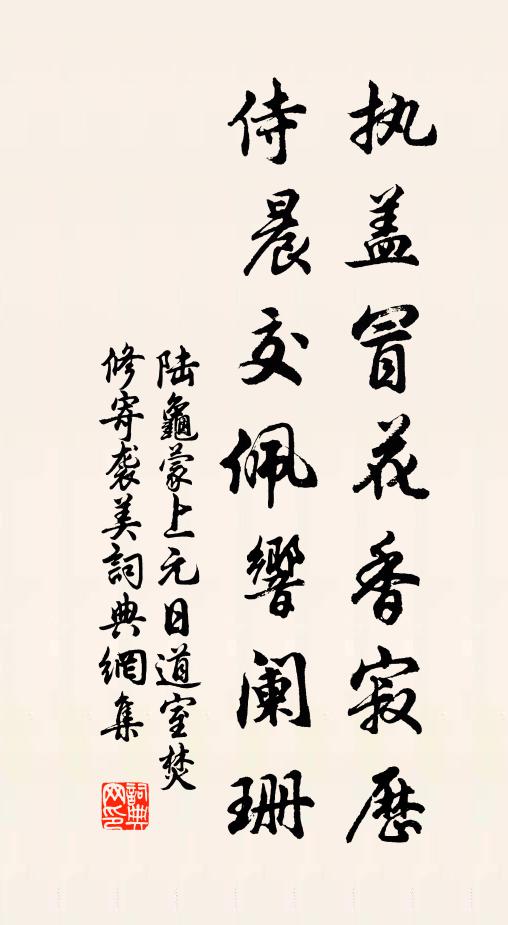 执盖冒花香寂历
侍晨交佩響阑珊
陆龜蒙上元日道室焚
修寄袭美詞典網集
詞典网印